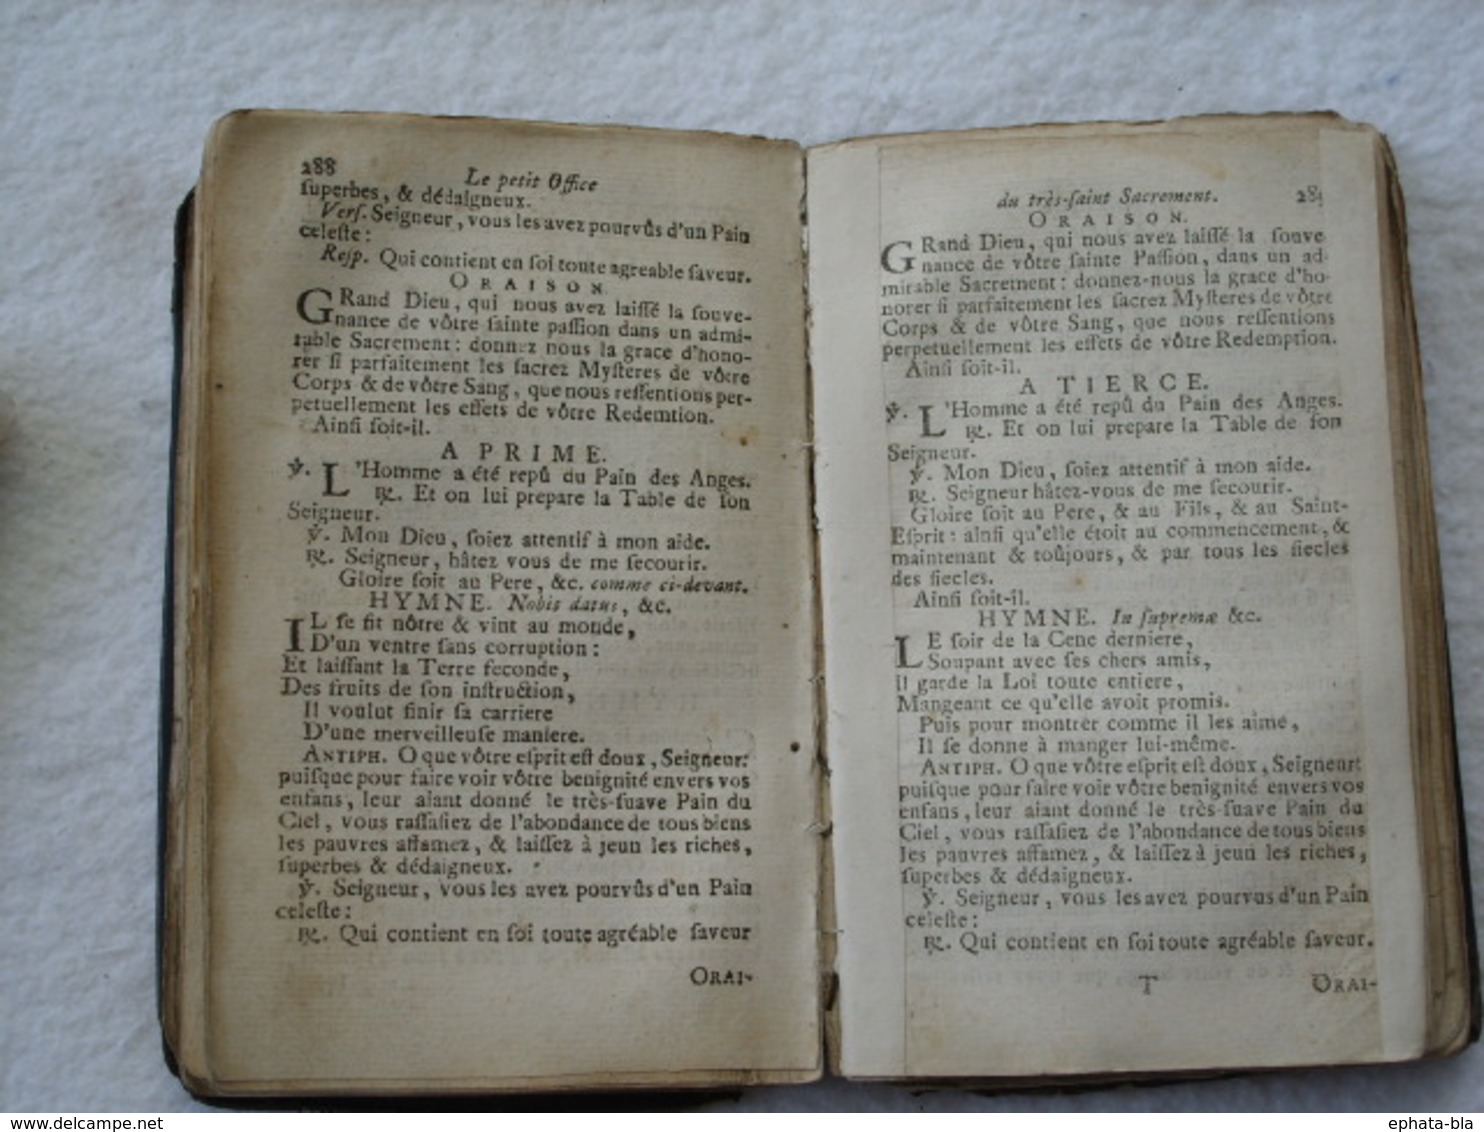 288 Le petit Office
ſuperbes, & dédaigneux.
Verſ. Seigneur, vous les avez pourvûs d'un Pain
celeſte :
Reſp. Qui contient en ſoi toute agreable ſaveur.
ORAISON.
GRand Dieu, qui nous avez laiſſé la ſouve-
nance de vôtre ſainte paſſion dans un admi-
rable Sacrement : donnez nous la grace d'hono-
rer ſi parfaitement les ſacrez Myſteres de vôtre
Corps & de vôtre Sang, que nous reſſentions per-
petuellement les effets de vôtre Redemtion.
Ainſi ſoit-il.
A PRIME.
℣. L'Homme a été repû du Pain des Anges.
℟. Et on lui prepare la Table de ſon
Seigneur.
℣. Mon Dieu, ſoiez attentif à mon aide.
℟. Seigneur, hâtez vous de me ſecourir.
Gloire ſoit au Pere, &c. comme ci-devant.
HYMNE. Nobis datus, &c.
IL ſe fit nôtre & vint au monde,
D'un ventre ſans corruption :
Et laiſſant la Terre feconde,
Des fruits de ſon inſtruction,
Il voulut finir ſa carriere
D'une merveilleuſe maniere.
ANTIPH. O que vôtre eſprit eſt doux, Seigneur:
puiſque pour faire voir vôtre benignité envers vos
enfans, leur aiant donné le très-ſuave Pain du
Ciel, vous raſſaſiez de l'abondance de tous biens
les pauvres affamez, & laiſſez à jeun les riches,
ſuperbes & dédaigneux.
℣. Seigneur, vous les avez pourvûs d'un Pain
celeſte :
℟. Qui contient en ſoi toute agréable ſaveur
ORAI-
du très-ſaint Sacrement.
ORAISON.
GRand Dieu, qui nous avez laiſſé la ſouve
nance de vôtre ſainte Paſſion, dans un ad-
mirable Sacrement : donnez-nous la grace d'ho-
norer ſi parfaitement les ſacrez Myſteres de vôtre
Corps & de vôtre Sang, que nous reſſentions
perpetuellement les effets de vôtre Redemption.
Ainſi ſoit-il.
A TIERCE.
℣. L'Homme a été repû du Pain des Anges.
℟. Et on lui prepare la Table de ſon
Seigneur.
℣. Mon Dieu, ſoiez attentif à mon aide.
℟. Seigneur hâtez-vous de me ſecourir.
Gloire ſoit au Pere, & au Fils, & au Saint-
Eſprit : ainſi qu'elle étoit au commencement, &
maintenant & toûjours, & par tous les ſiecles
des ſiecles.
Ainſi ſoit-il.
HYMNE. In ſupremæ &c.
LE ſoir de la Cene derniere,
Soupant avec ſes chers amis,
Il garde la Loi toute entiere,
Mangeant ce qu'elle avoit promis.
Puis pour montrer comme il les aime,
Il ſe donne à manger lui-même.
ANTIPH. O que vôtre eſprit eſt doux, Seigneur:
puiſque pour faire voir vôtre benignité envers vos
enfans, leur aiant donné le très-ſuave Pain du
Ciel, vous raſſaſiez de l'abondance de tous biens
les pauvres affamez, & laiſſez à jeun les riches,
ſuperbes & dédaigneux.
℣. Seigneur, vous les avez pourvus d'un Pain
celeſte :
℟. Qui contient en ſoi toute agréable ſaveur.
T ORAI-
www.delcampe.net
ephata-bla